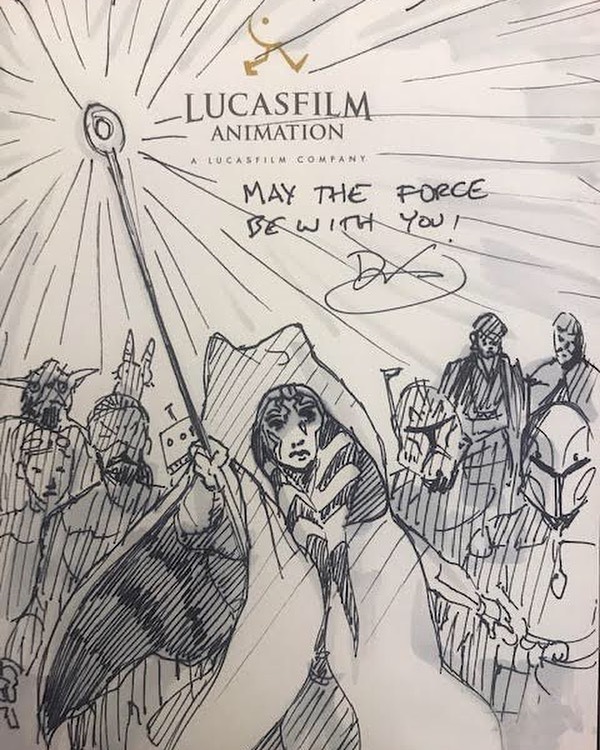 LUCASFILM
ANIMATION
A LUCASFILM COMPANY
MAY THE FORCE
BE WITH YOU!